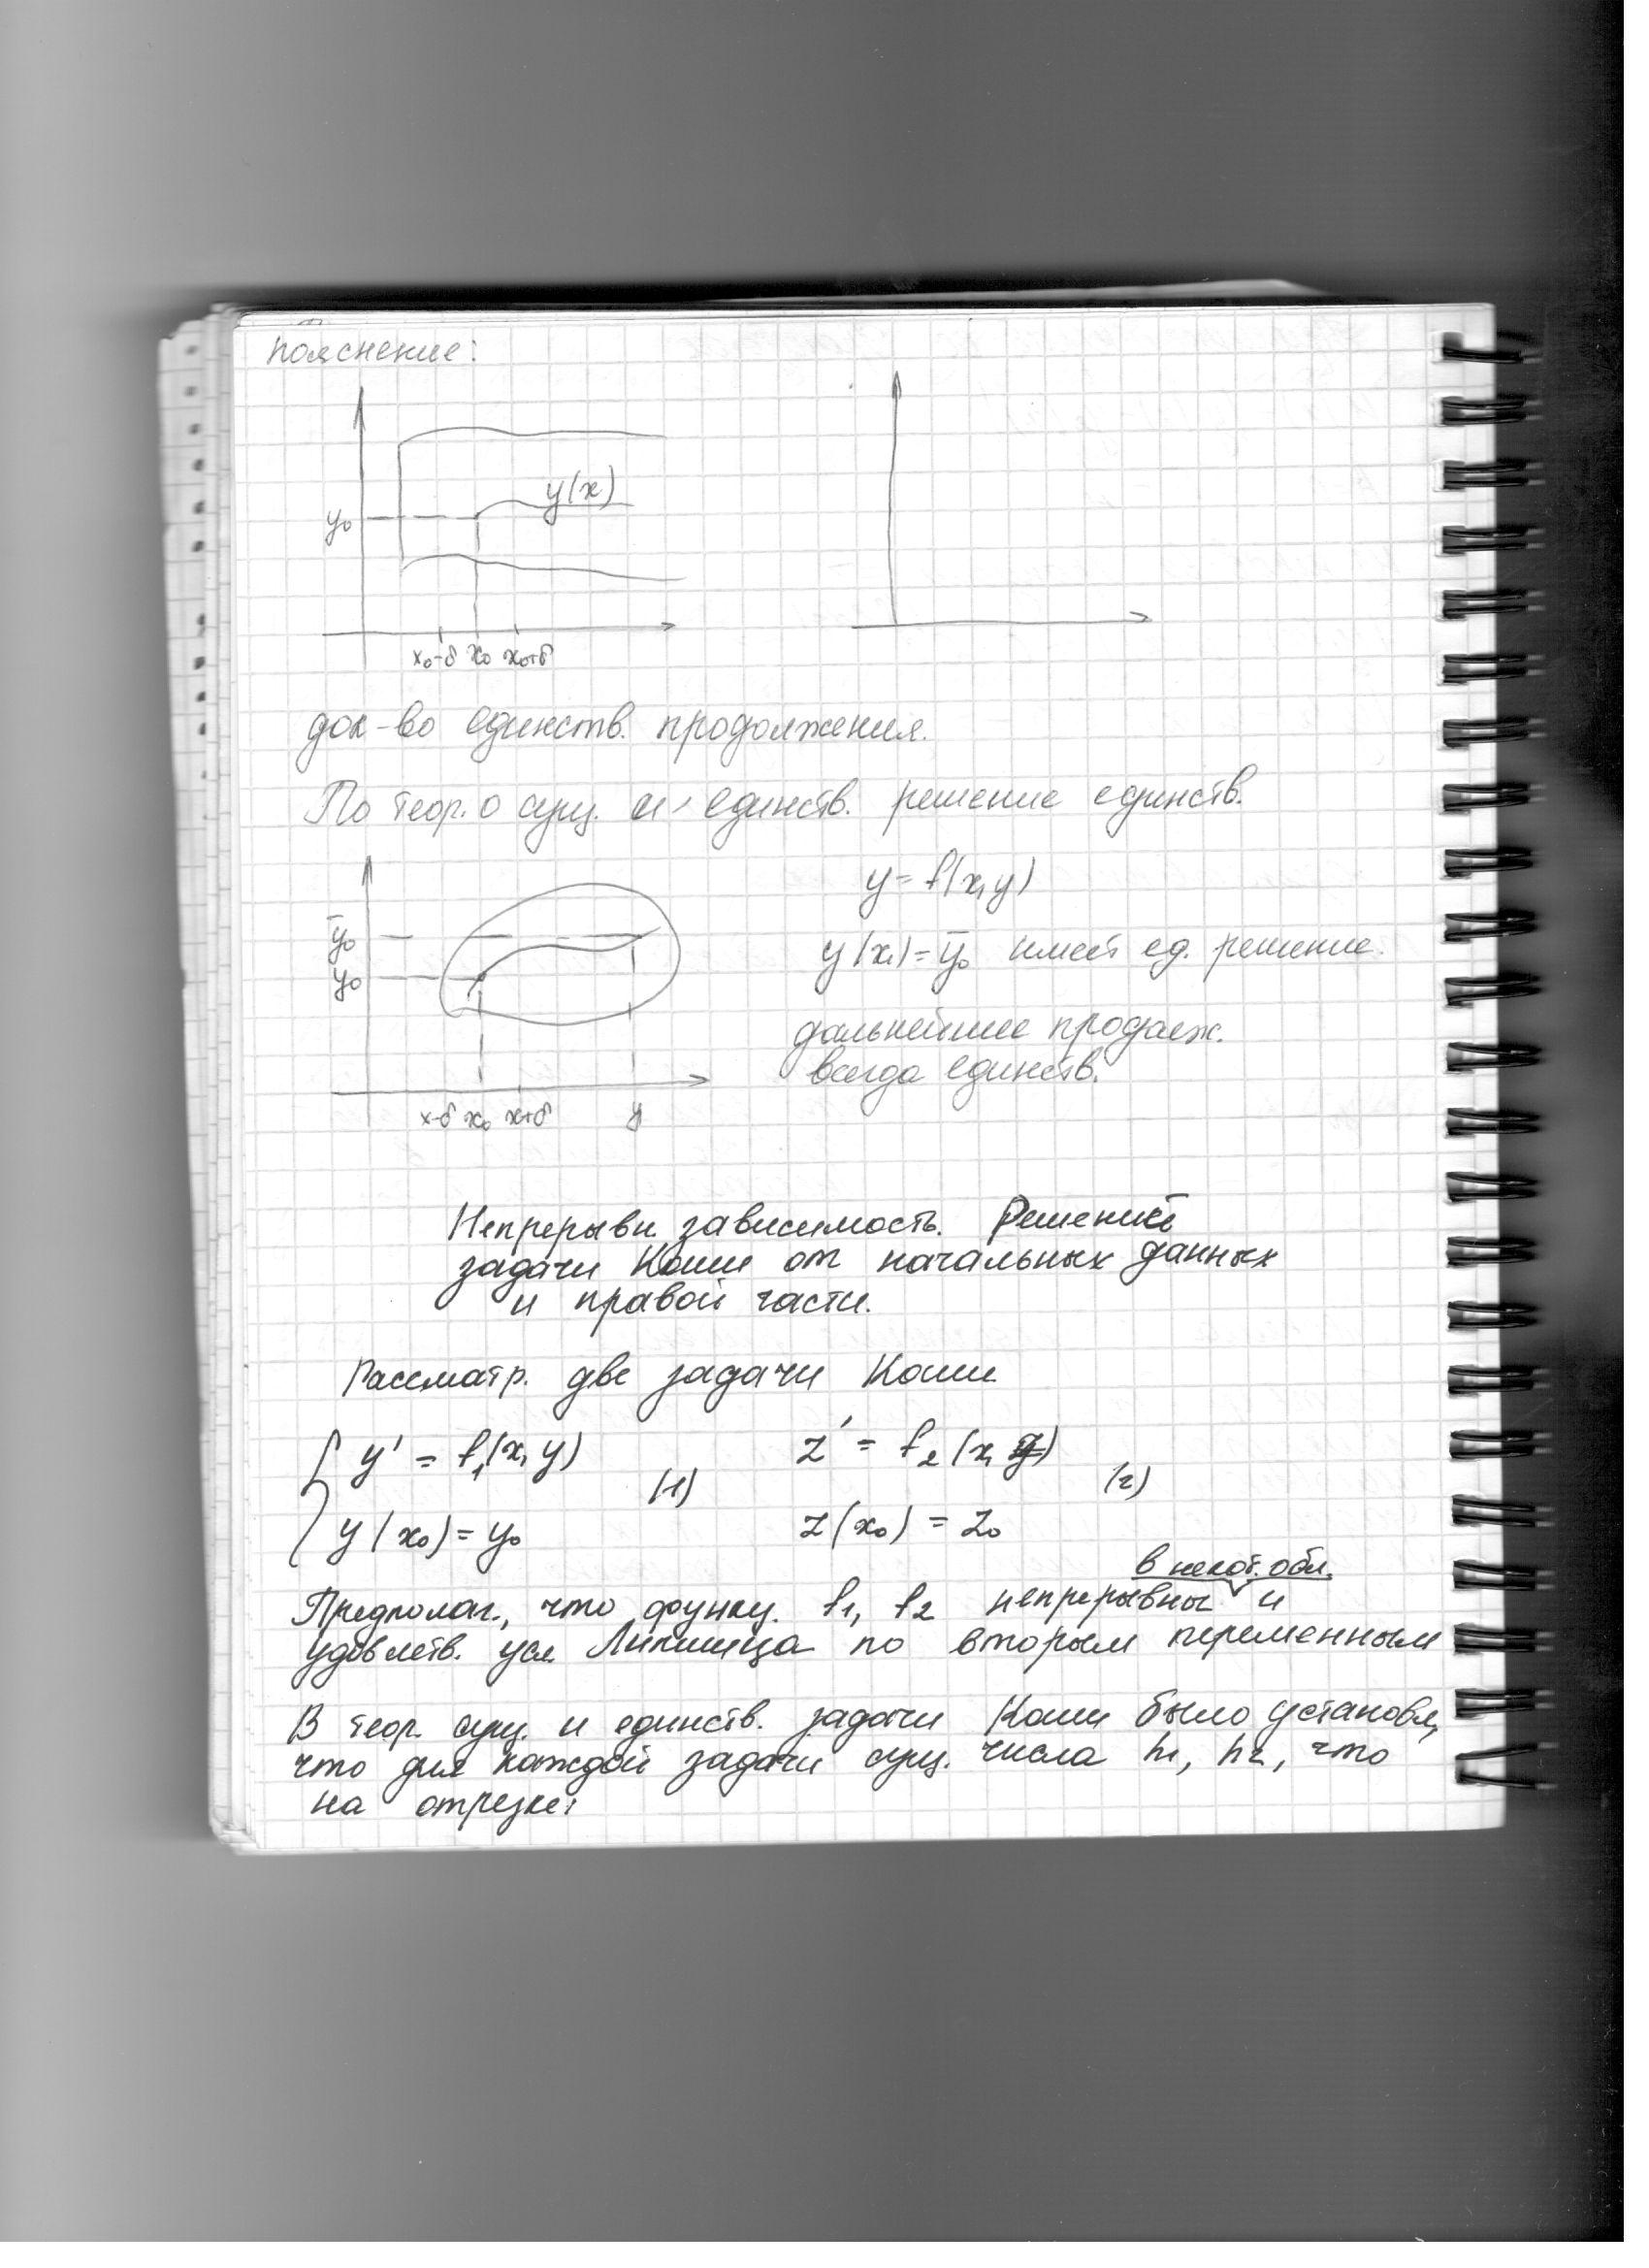 пояснение:
y(x)
y₀
x₀-δ x₀ x₀+δ
док-во единств. продолжения.
По теор. о сущ. и единств. решение единств.
y = f(x, y)
ȳ₀
y(x₁) = ȳ₀ имеет ед. решение.
y₀
дальнейшее продолж.
всегда единств.
x-δ x₀ x+δ
Непрерывн. зависимость. Решений
задачи Коши от начальных данных
и правой части.
Рассматр. две задачи Коши
y' = f₁(x, y) z' = f₂(x, z)
(1) (2)
y(x₀) = y₀ z(x₀) = z₀
в некот. обл.
Предполаг., что функц. f₁, f₂ непрерывны и
удовлетв. усл. Липшица по вторым переменным
В теор. сущ. и единств. задачи Коши было установл,
что для каждой задачи сущ. числа h₁, h₂, что
на отрезке: